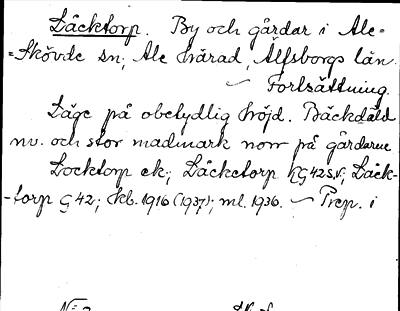 Läcktorp. By och gårdar i Ale-
=Skövde sn; Ale härad, Älfsborgs län.
— Fortsättning.
Läge på obetydlig höjd. Bäckdäld
nv. och stor madmark norr på gårdarne
Locktorp ek; Läcketorp G42Sv; Läck-
-torp G42; kb. 1916 (1937); ml. 1936. — Prep. i